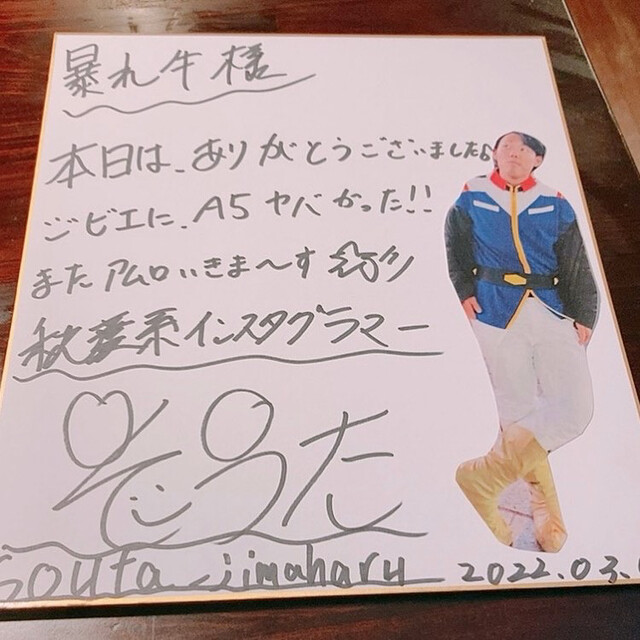 暴れ牛様
本日は、ありがとうございました。
ジビエに、A5ヤバかった!!
またアムロいきま〜す
秋葉系インスタグラマー
そうた
Souta_jimaharu
2022.03.